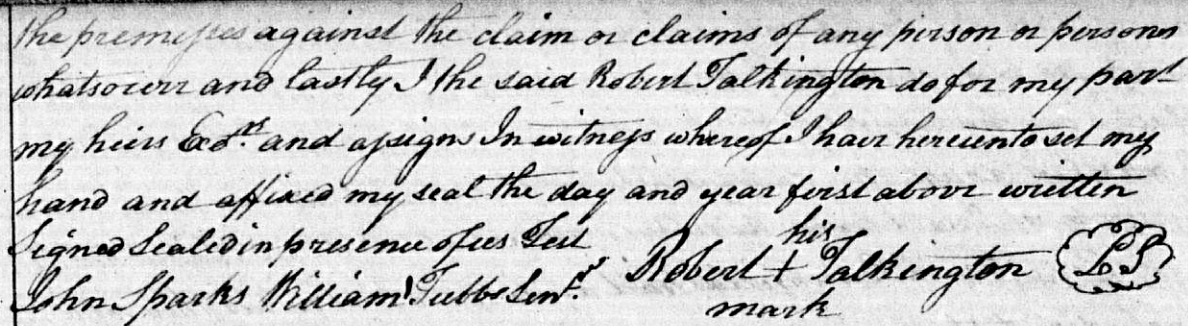 the premises against the claim or claims of any person or persons
whatsoever and lastly I the said Robert Talkington do for my part
my heirs Exd.rs and assigns In witness whereof I have hereunto set my
hand and affixed my seal the day and year first above written
Signed Sealed in presence of us Test
his
John Sparks William Tubbs Senr. Robert + Talkington LS
mark